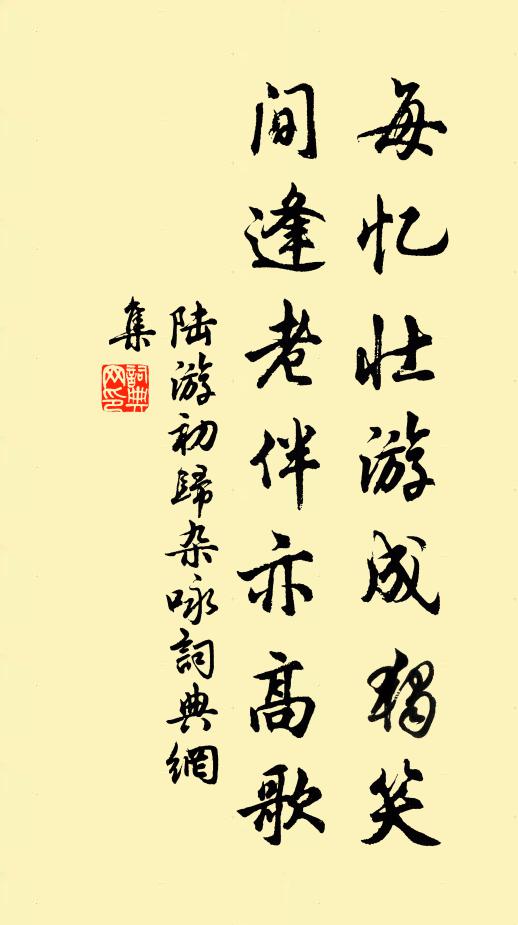 每忆壮游成独笑
间逢老伴亦高歌
陆游初歸杂咏詞典網
集
詞典
网印